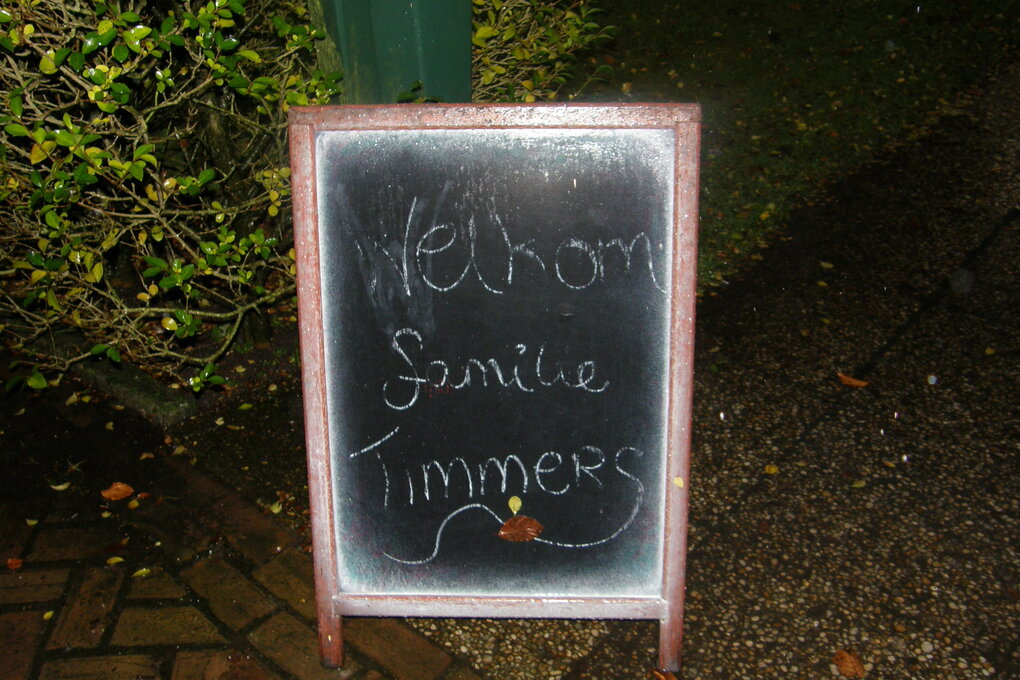 Welkom
familie
TimmeRs